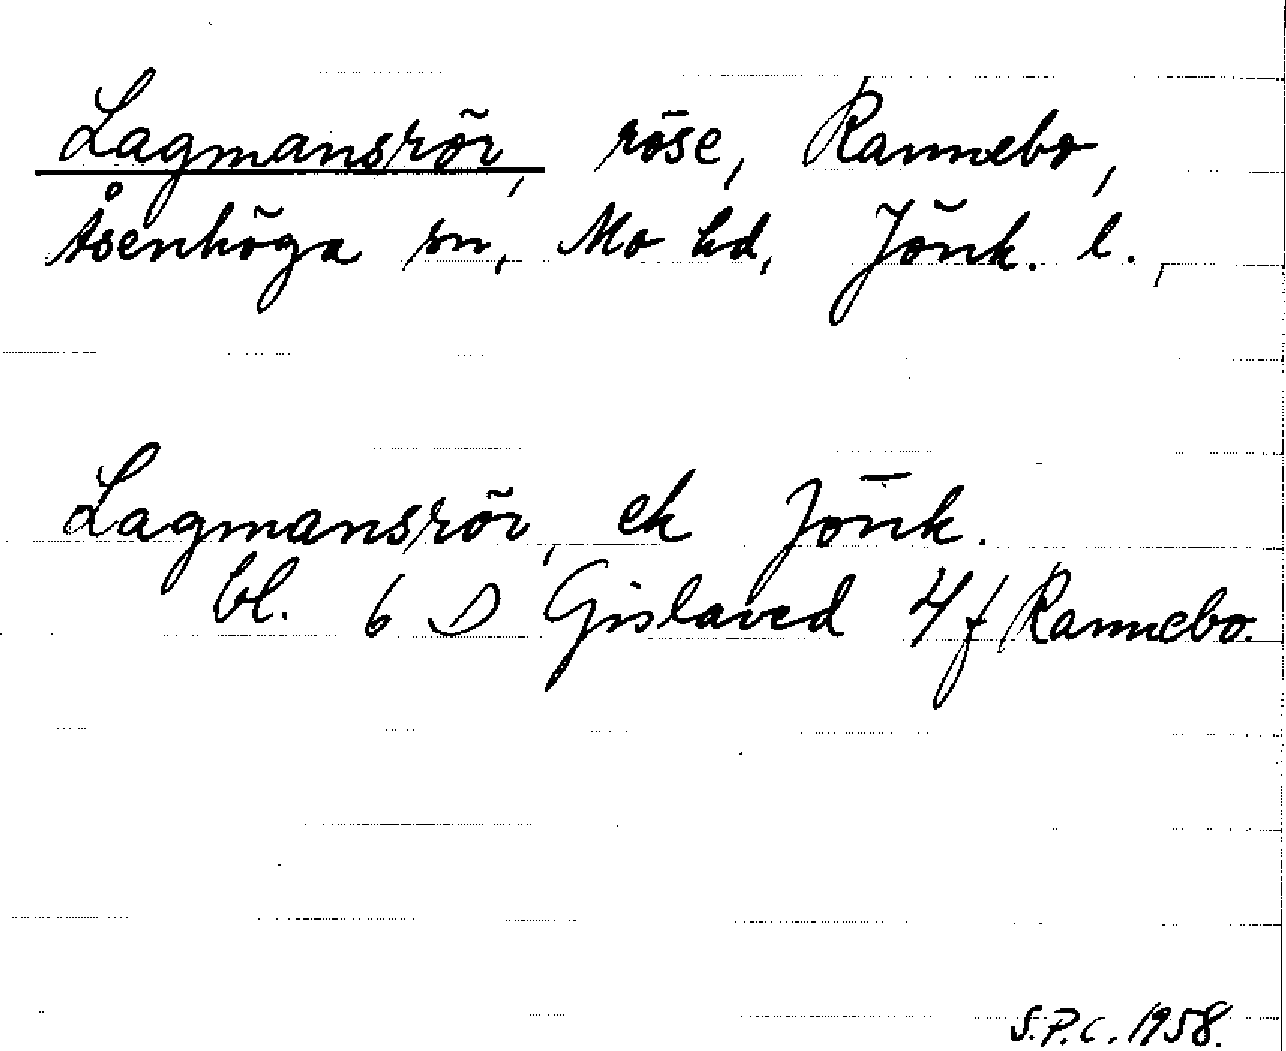 Lagmansrör, röse, Rannebo,
Åsenhöga sn, Mo hd, Jönk. l.,
Lagmansrör, ek Jönk.
bl. 6 D Gislaved 4 f Rannebo.
S.P.C. 1958.